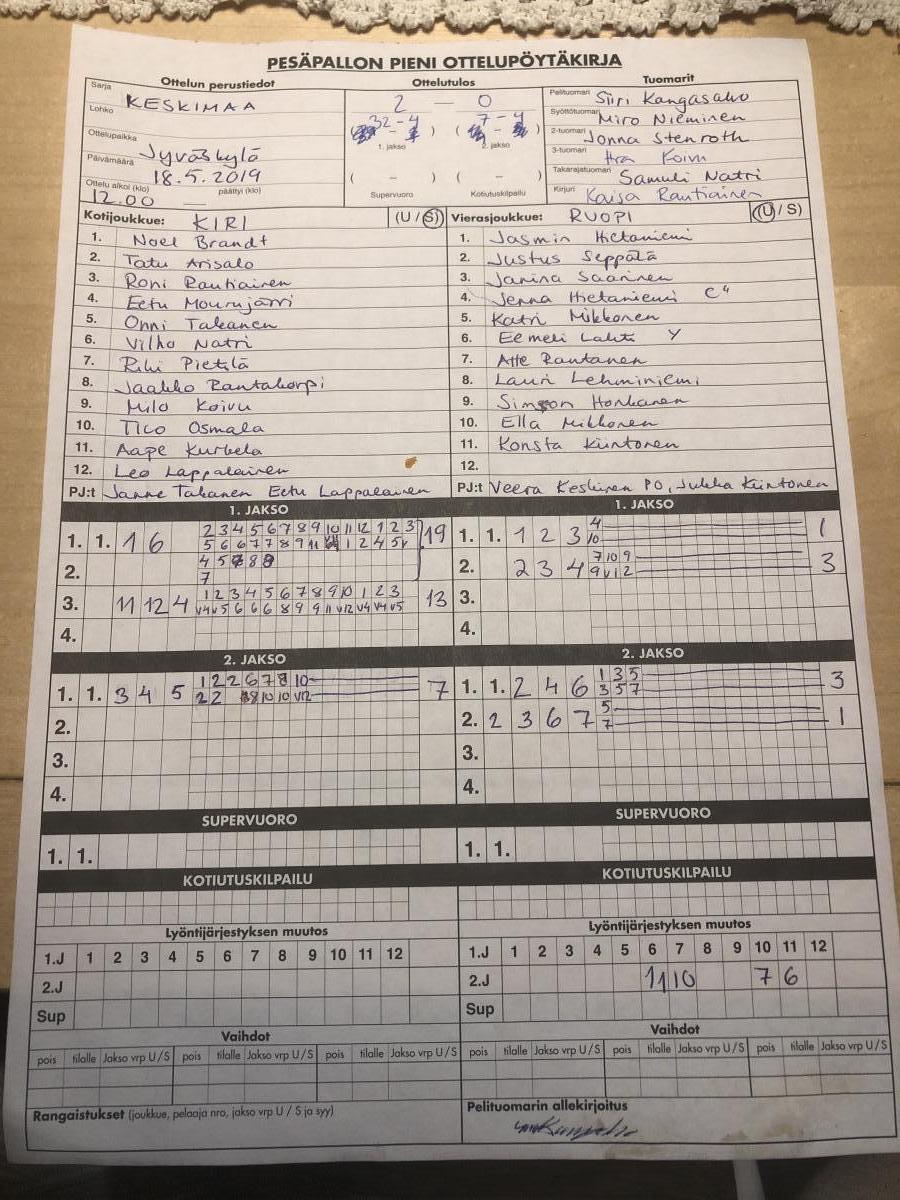 PESÄPALLON PIENI OTTELUPÖYTÄKIRJA
Ottelun perustiedot
Sarja KESKIMAA
Lohko
Ottelupaikka Jyväskylä
Päivämäärä 18.5.2019
Ottelu alkoi (klo) 12.00 päättyi (klo) —
Ottelutulos
2 — 0
32 - 4 7 - 4
( - ) ( - )
1. jakso 2. jakso
( - ) ( - )
Supervuoro Kotiutuskilpailu
Tuomarit
Pelituomari Siiri Kangasaho
Syöttötuomari Miro Nieminen
2-tuomari Jonna Stenroth
3-tuomari Koivu
Takarajatuomari Samuli Natri
Kirjuri Kaisa Rautiainen
Kotijoukkue: KIRI (U / S)
1. Noel Brandt
2. Tatu Arisalo
3. Roni Rautiainen
4. Eetu Mourujärvi
5. Onni Takanen
6. Vilho Natri
7. Riki Pietilä
8. Jaakko Rantakorpi
9. Milo Koivu
10. Tico Osmala
11. Aape Kurkela
12. Leo Lappalainen
PJ:t Janne Takanen Eetu Lappalainen
Vierasjoukkue: RUOPI (U / S)
1. Jasmin Hietaniemi
2. Justus Seppälä
3. Janina Saarinen
4. Jenna Hietaniemi
5. Katri Mikkonen
6. Eemeli Lahti Y
7. Atte Rantanen
8. Lauri Lehminiemi
9. Simson Honkanen
10. Ella Mikkonen
11. Konsta Kiintonen
12.
PJ:t Veera Keskinen PO, Jukka Kiintonen
1. JAKSO
1. 1. 1 6 2 3 4 5 6 7 8 9 10 11 12 1 2 3 19
5 6 6 7 7 8 9 11 1 2 4 5v
2. 4 5 8 8
7
3. 11 12 4 1 2 3 4 5 6 7 8 9 10 1 2 3 13
v4 v5 6 6 6 8 9 9 11 v12 v4 v4 v5
4.
1. JAKSO
1. 1. 1 2 3 4 1
10
2. 2 3 4 7 10 9 3
9 v12
3.
4.
2. JAKSO
1. 1. 3 4 5 1 2 2 6 7 8 10 7
2 2 8 10 10 v12
2.
3.
4.
2. JAKSO
1. 1. 2 4 6 1 3 5 3
3 5 7
2. 2 3 6 7 5 1
7
3.
4.
SUPERVUORO
1. 1.
SUPERVUORO
1. 1.
KOTIUTUSKILPAILU
KOTIUTUSKILPAILU
Lyöntijärjestyksen muutos
1.J 1 2 3 4 5 6 7 8 9 10 11 12
2.J
Sup
Lyöntijärjestyksen muutos
1.J 1 2 3 4 5 6 7 8 9 10 11 12
2.J 11 10 7 6
Sup
Vaihdot
pois tilalle Jakso vrp U / S pois tilalle Jakso vrp U / S pois tilalle Jakso vrp U / S
Vaihdot
pois tilalle Jakso vrp U / S pois tilalle Jakso vrp U / S pois tilalle Jakso vrp U / S
Rangaistukset (joukkue, pelaaja nro, jakso vrp U / S ja syy)
Pelituomarin allekirjoitus